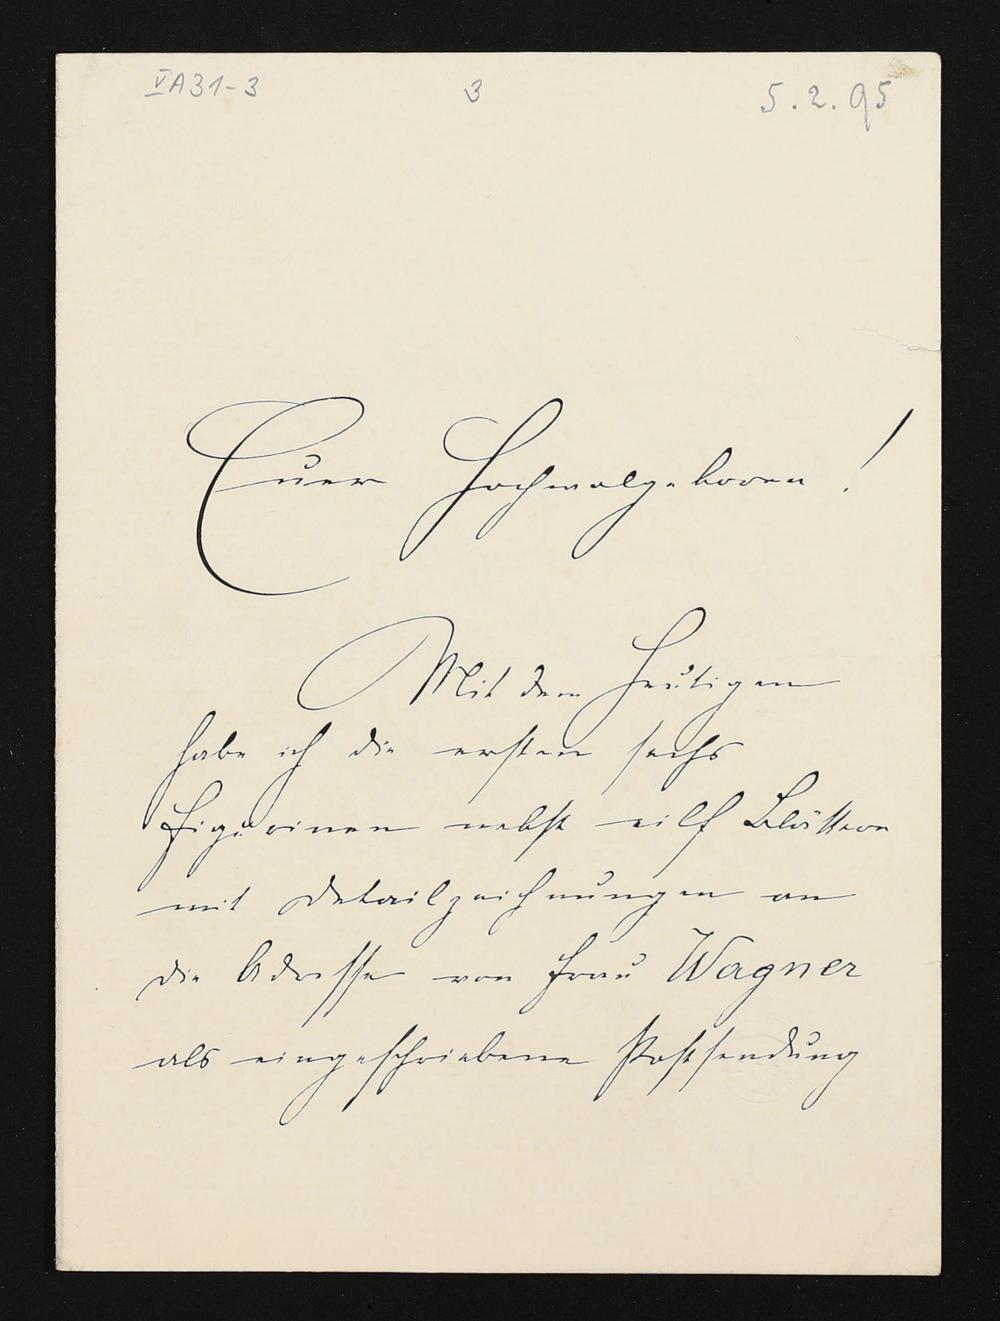 V A 31-3 3 5.2.95
Euer Hochwolgeboren!
Mit dem Heutigen
habe ich die ersten sechs
Figurinen nebst eilf Blättern
mit Detailzeichnungen an
die Adresse von Frau Wagner
als eingeschriebene Postsendung